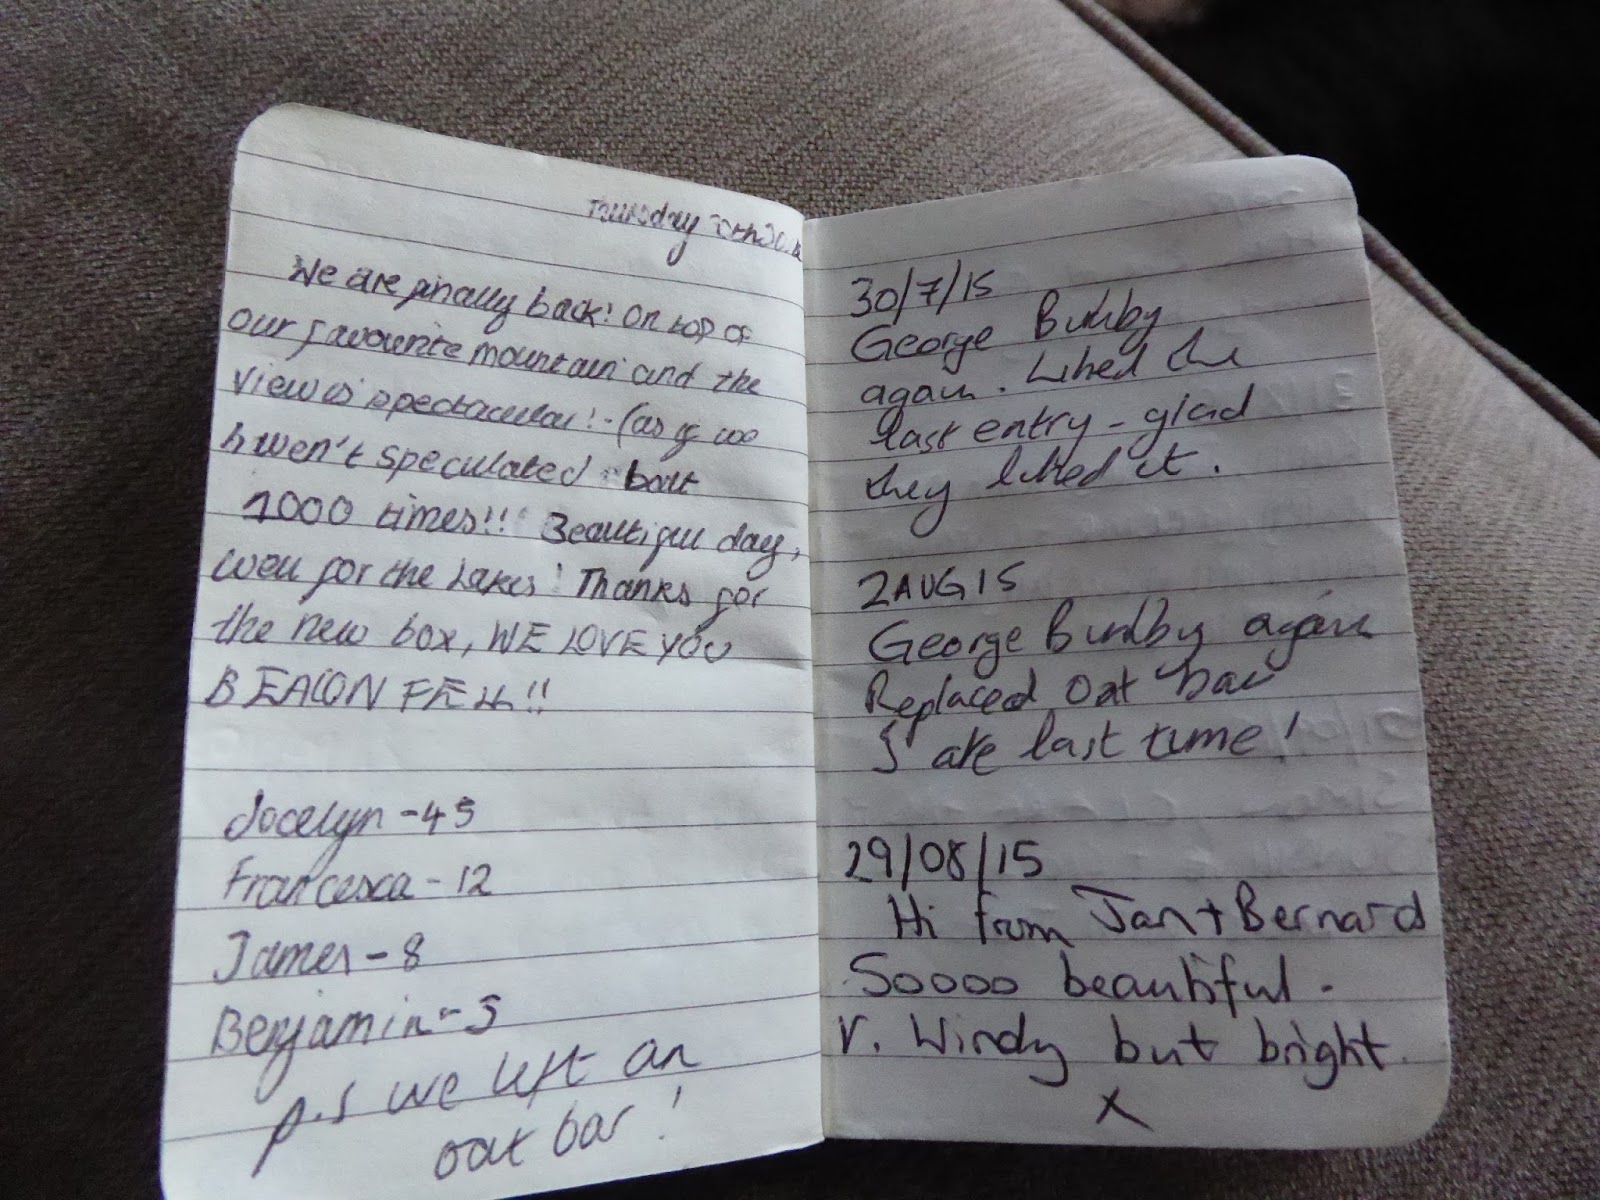 Thursday
We are finally back! On top of
our favourite mountain and the
view is spectacular! - (as if we
haven't speculated that
1000 times!! Beautiful day,
well for the Lakes! Thanks for
the new box, WE LOVE YOU
BEACON FELL!!
Jocelyn - 45
Francesca - 12
James - 8
Benjamin - 5
p.s we left an
oat bar!
30/7/15
George
again. Liked the
last entry - glad
they liked it.
2 AUG 15
George again
Replaced oat bar
I ate last time!
29/08/15
Hi from Jan + Bernard
Soooo beautiful.
V. Windy but bright.
X